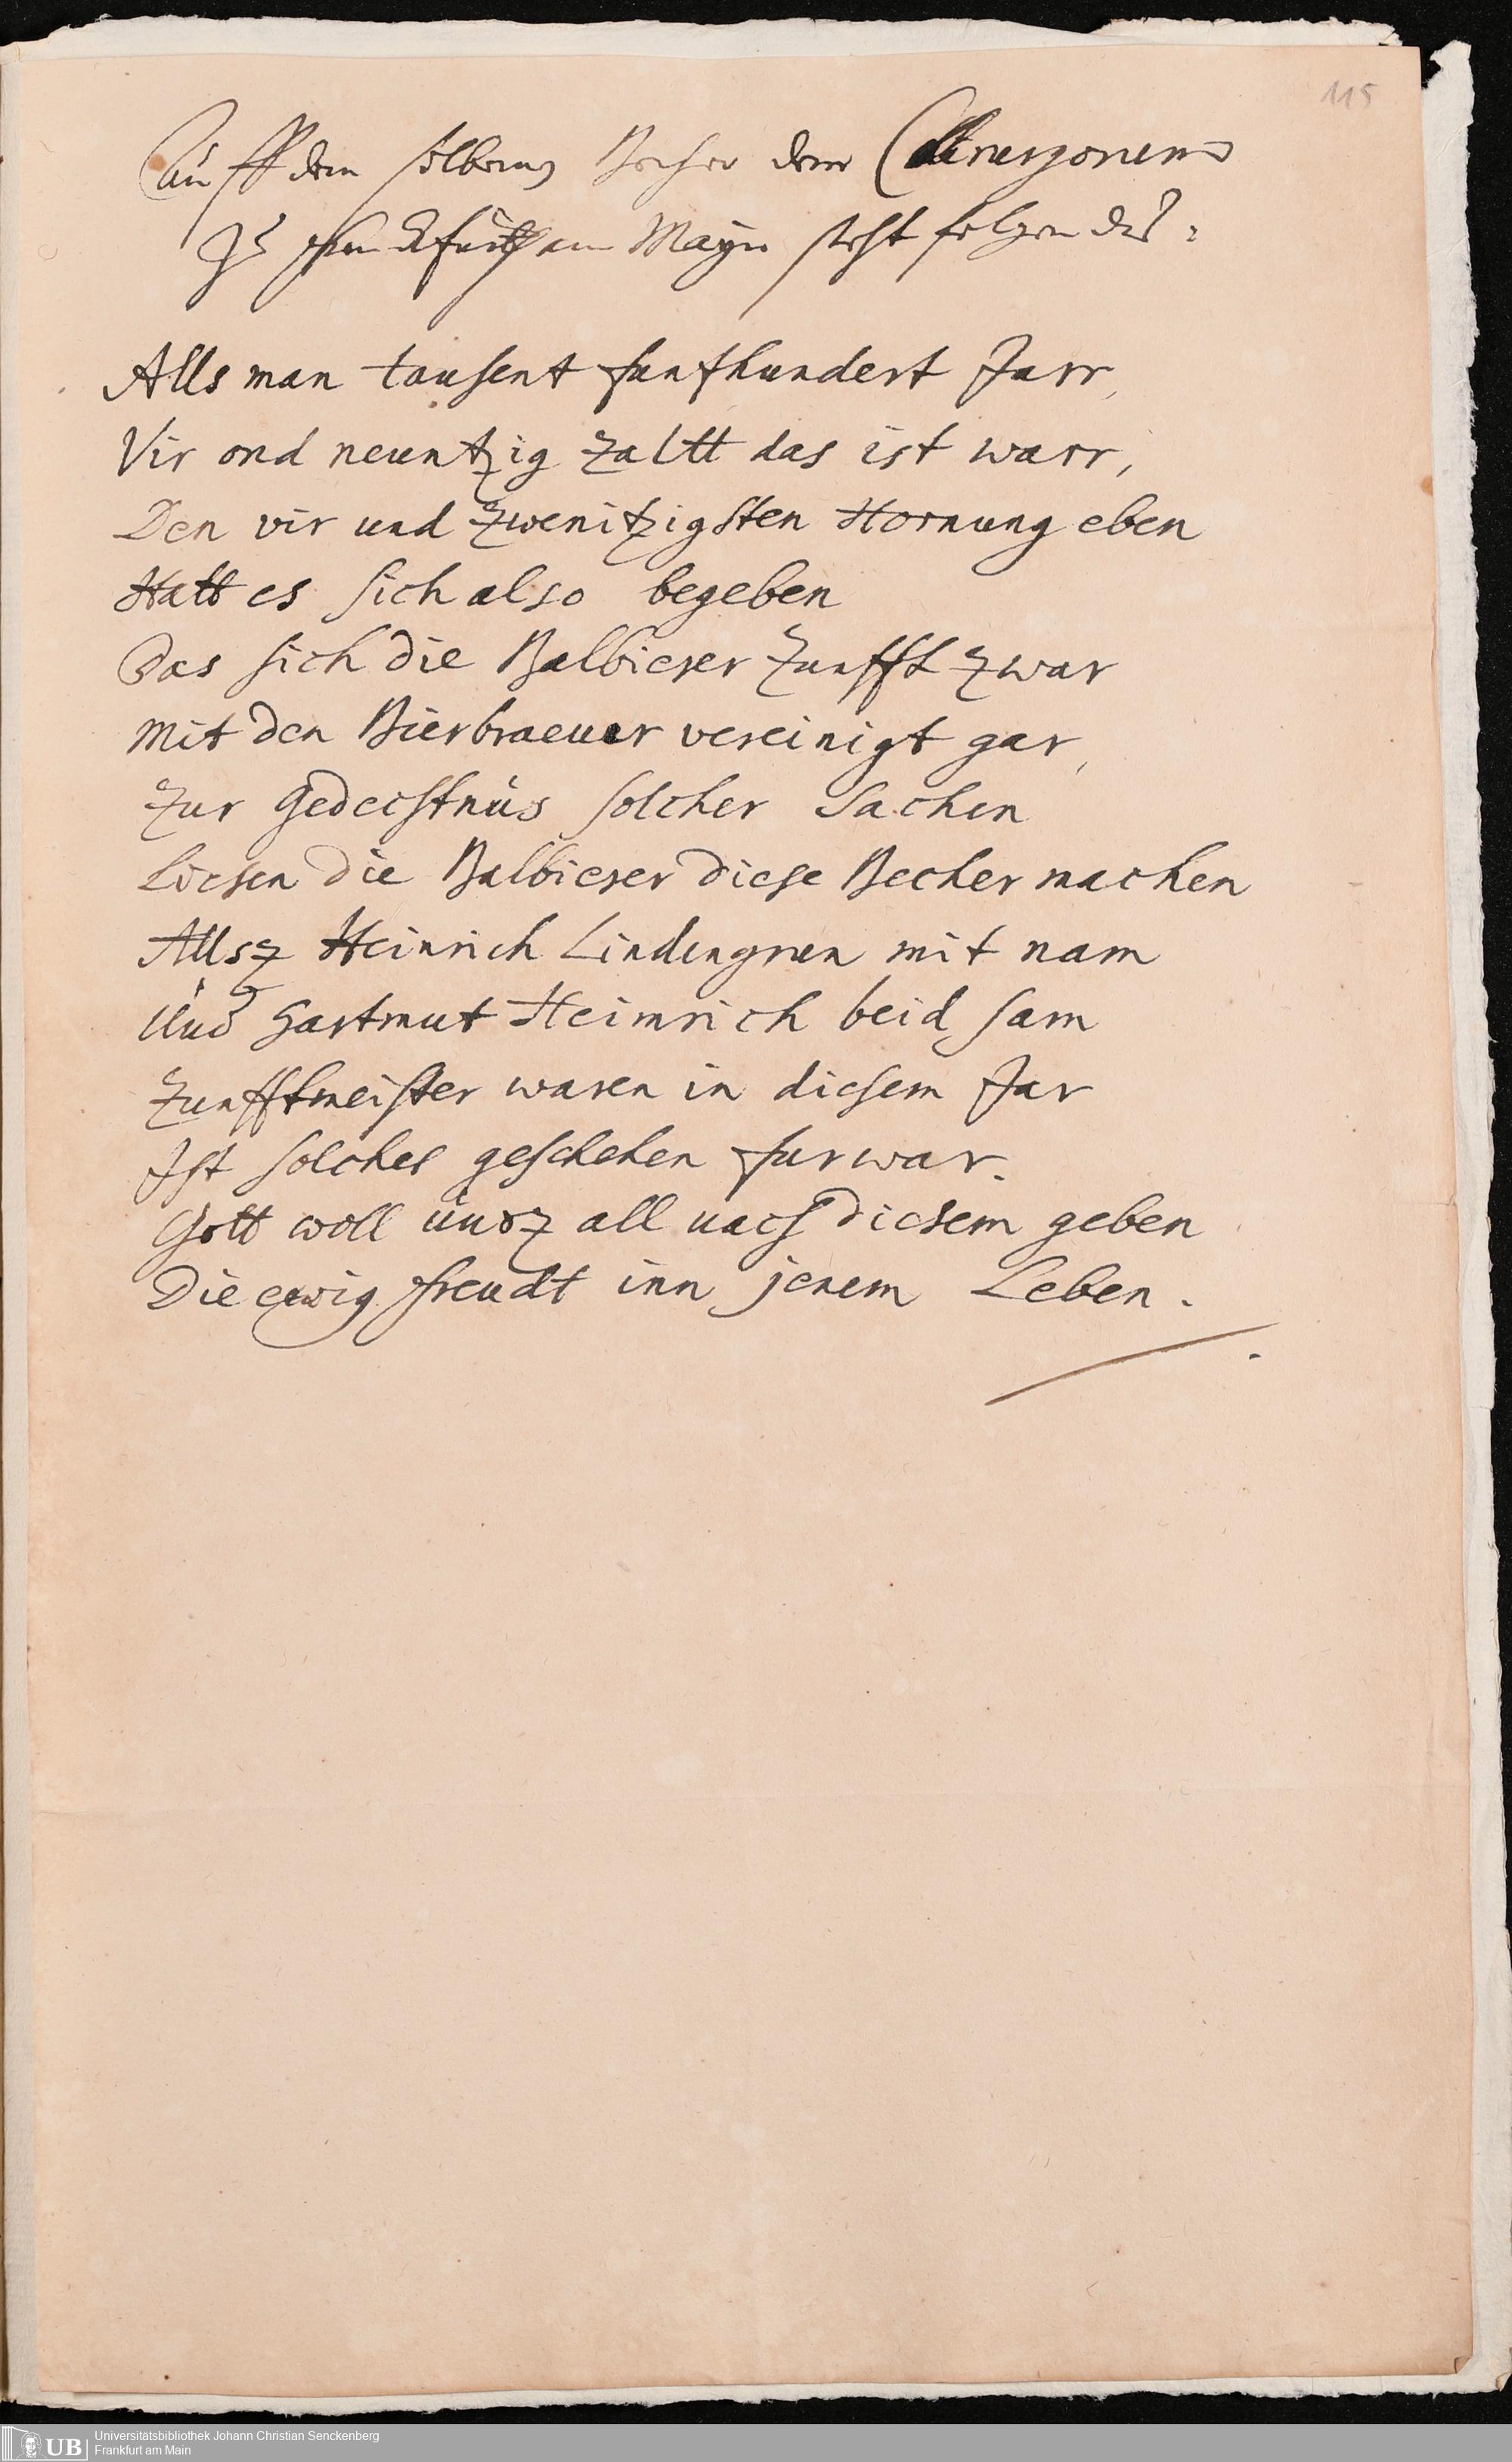 115
Auff dem silbernen Becher der Chirurgorum
Zu Franckfurth am Mayn steht folgendes:
Alls man tausent funfhundert Jarr,
Vir ond neuntzig zaltt das ist warr,
Den vir und zwenitzigsten Hornung eben
Hatt es sich also begeben
Das sich die Balbierer Zunfft zwar
Mit den Bierbraeuer vereinigt gar,
Zur Gedechtnüs solcher Sachen
Liesen die Balbierer diese Becher machen
Allsz Heinrich Lindengrren mit nam
Und Hartmut Heimrich beid sam
Zunfftmeister waren in diesem Jar
Ist solches geschehen furwar.
Gott woll unsz all nach diesem geben
Die ewig freudt inn jenem Leben.
UB
Universitätsbibliothek Johann Christian Senckenberg
Frankfurt am Main